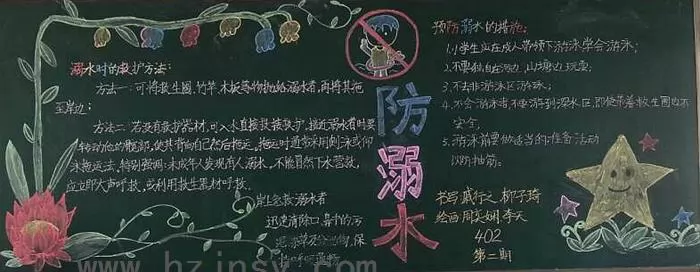 溺水时的救护方法:
方法一:可将救生圈、竹竿、木板等物抛给溺水者,再将其拖
至岸边;
方法二:若没有救护器材,可入水直接救护,接近溺水者时要
转动他的髋部,使其背向自己然后拖运。拖运时通常采用侧泳或仰
泳拖运法。特别强调:未成年人发现有人溺水,不能冒然下水营救,
应立即大声呼救,或利用救生器材呼救。
岸上急救溺水者
迅速清除口、鼻中的污
防溺水
预防溺水的措施:
1.小学生应在成人带领下游泳学会游泳;
2.不要独自在河边、山塘边玩耍;
3.不去非游泳区游泳;
4.不会游泳者,不要游到深水区,即使带着救生圈也不
安全;
5.游泳前要做适当的准备活动
以防抽筋。
书写 戚行之 柳子琦
绘画 周奕娴 李天
402
第二期
www.hzjnsy.com